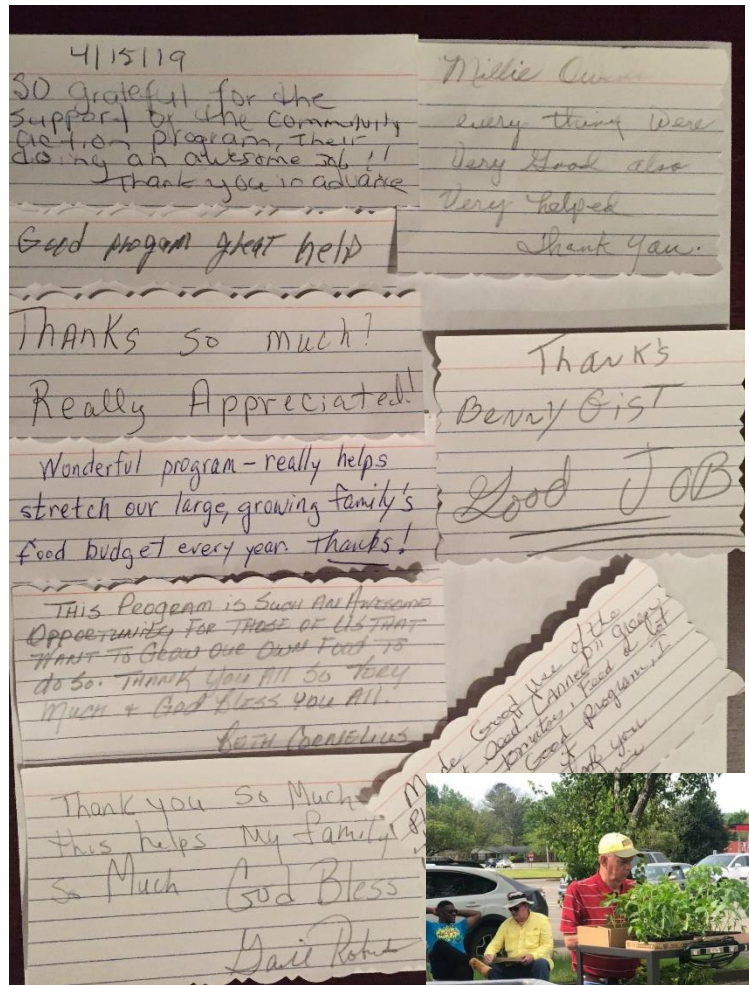 4/15/19
SO grateful for the
support of the community
action program, Their
doing an awesome Job !!
Thank you in advance
Good progam great help
Thanks so much?
Really Appreciated!
Wonderful program - really helps
stretch our large, growing family's
food budget every year. Thanks!
This Program is Such An Awesome
Opportunity For Those of Us That
Want To Grow Our Own Food To
do So. Thank You All So Very
Much & God Bless You All.
Beth Cornelius
Thank you So Much
this helps My family
So Much God Bless
Gail
Millie
every thing Were
Very Good also
Very helped
Thank You.
Thank's
Benny Gist
Good JOB
Made Good use of the
Seed Canned green
tomatos, Feed a lot
Good program, I
you